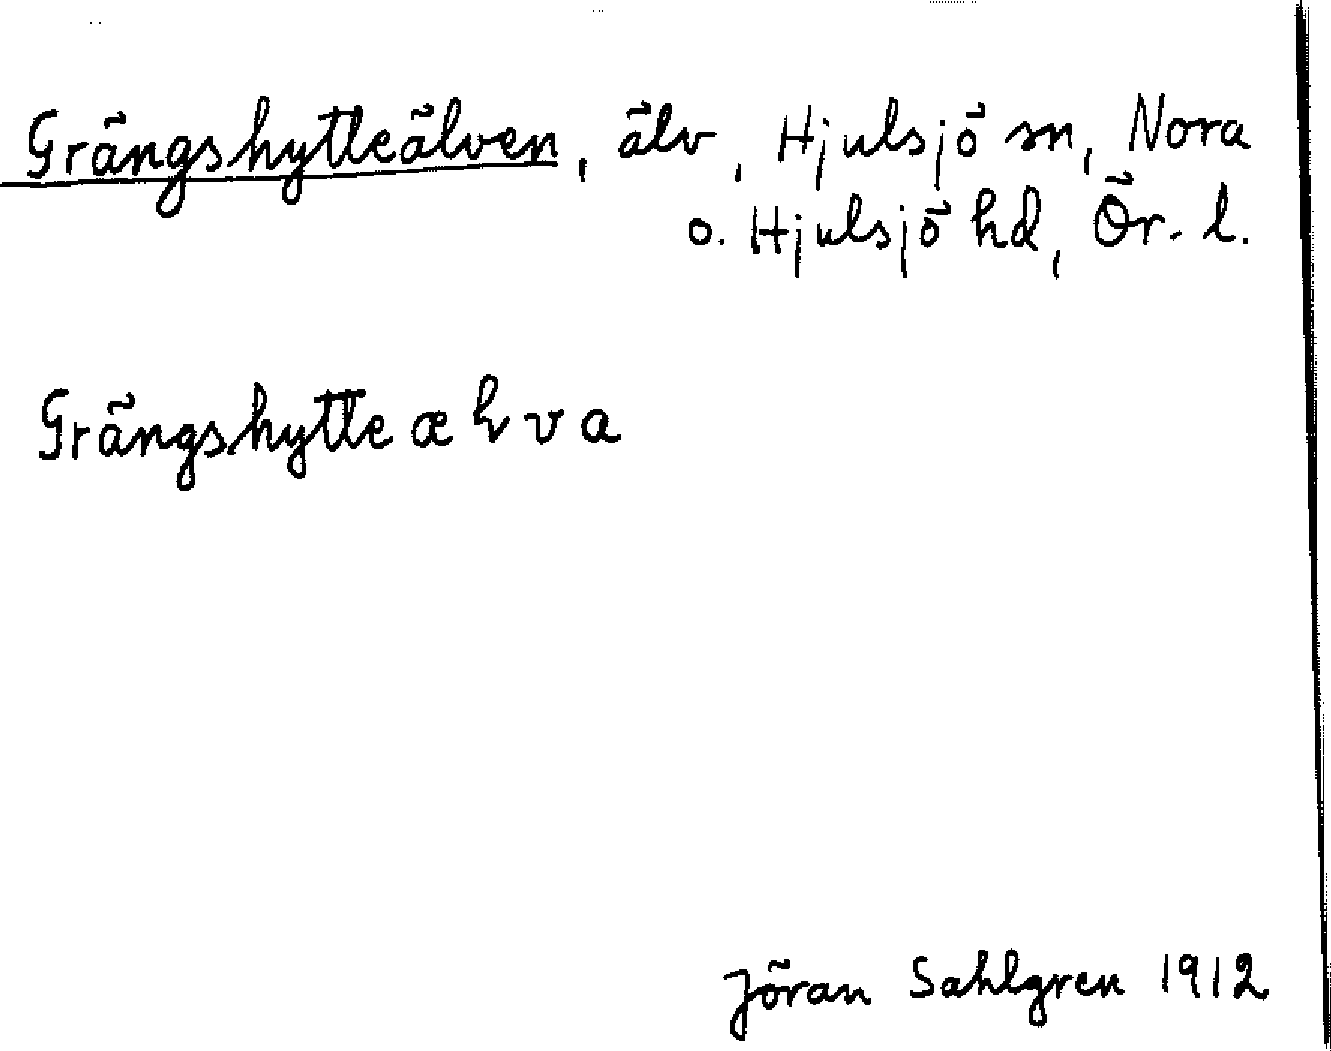 Grängshytteälven, älv, Hjulsjö sn, Nora
o. Hjulsjö hd, Ör. l.
Grängshytte
Jöran Sahlgren 1912